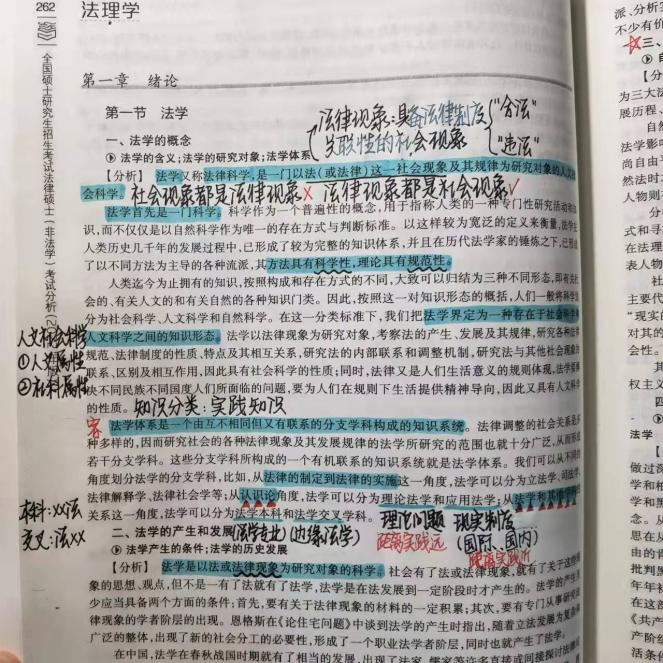 262
法理学
全国硕士研究生招生考试法律硕士(非法学)考试分析(2
第一章 绪论
第一节 法学
法律现象:具备法律制度
关联性的社会现象
"合法"
"违法"
一、法学的概念
法学的含义;法学的研究对象;法学体系
【分析】 法学又称法律科学,是一门以法(或法律)这一社会现象及其规律为研究对象的人文社
会科学。
社会现象都是法律现象× 法律现象都是社会现象✓
法学首先是一门科学。科学作为一个普遍性的概念,用于指称人类的一种专门性研究活动和
识,而不仅仅是以自然科学作为唯一的存在方式与判断标准。以这样较为宽泛的定义来衡量,法学在
人类历史几千年的发展过程中,已形成了较为完整的知识体系,并且在历代法学家的锤炼之下,已形成
了以不同方法为主导的各种流派,其方法具有科学性,理论具有规范性。
人类迄今为止拥有的知识,按照构成和存在方式的不同,大致可以归结为三种不同形态,即有关社
会的、有关人文的和有关自然的各种知识门类。因此,按照这一对知识形态的概括,人们一般将科学
分为社会科学、人文科学和自然科学。在这一分类标准下,我们把法学界定为一种存在于社会科学和
人文科学之间的知识形态。法学以法律现象为研究对象,考察法的产生、发展及其规律,研究各种法律
规范、法律制度的性质、特点及其相互关系,研究法的内部联系和调整机制,研究法与其他社会现象的
联系、区别及相互作用,因此具有社会科学的性质;同时,法律又是人们生活意义的规则体现,法学探索
决不同民族不同国度人们所面临的问题,要为人们在规则下生活提供精神导向,因此又具有人文科学
的性质。
知识分类:实践知识
人文社会科学
①人文属性
②社科属性
客
法学体系是一个由互不相同但又有联系的分支学科构成的知识系统。法律调整的社会关系是多
种多样的,因而研究社会的各种法律现象及其发展规律的法学所研究的范围也就十分广泛,从而形成
若干分支学科。这些分支学科所构成的一个有机联系的知识系统就是法学体系。我们可以从不同的
角度划分法学的分支学科,比如,从法律的制定到法律的实施这一角度,法学可以分为立法学、司法学、
法律解释学、法律社会学等;从认识论角度,法学可以分为理论法学和应用法学;从法学和其他学科的
关系这一角度,法学可分为法学本科和法学交叉学科。
本科:XX法
交叉:法XX
理论问题 现实制度
(法学专业)(边缘法学)
距离实践远
(国际、国内)
距离实践近
二、法学的产生和发展
法学产生的条件;法学的历史发展
【分析】 法学是以法或法律现象为研究对象的科学。社会有了法或法律现象,就有了关于这些现
象的思想、观点,但不是一有了法就有了法学,法学是在法发展到一定阶段时才产生的。法学的产生至
少应当具备两个方面的条件:首先,要有关于法律现象的材料的一定积累;其次,要有专门从事研究法
律现象的学者阶层的出现。恩格斯在《论住宅问题》中谈到法学的产生时指出,随着立法发展为复杂和
广泛的整体,出现了新的社会分工的必要性,形成了一个职业法学者阶层,同时也就产生了法学。
在中国,法学在春秋战国时期就有了相当的发展,出现了法家、儒家等许多直接或间接探讨法律问